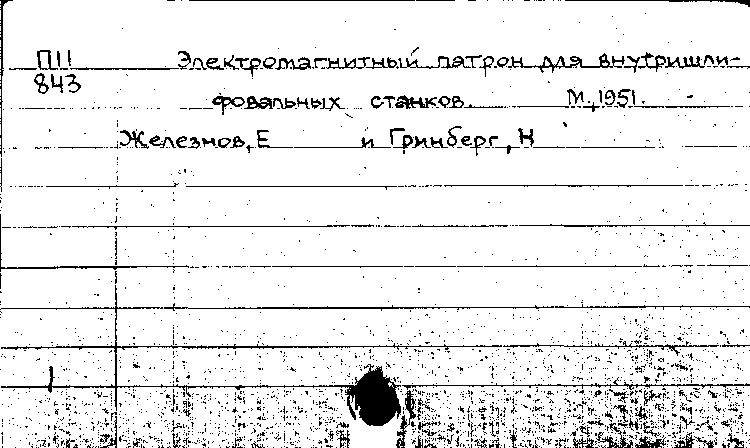 П11 Электромагнитный патрон для внутришли-
843 фовальных станков. М., 1951.
Железнов, Е и Гринберг, Н